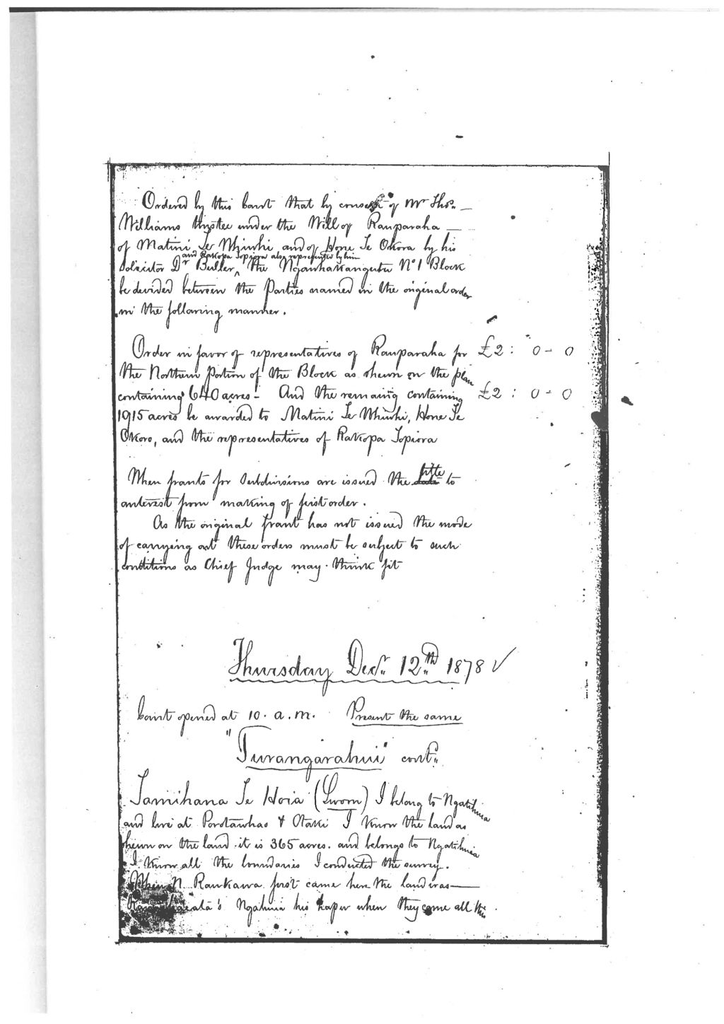 Ordered by this Court that by consent of Mr Thos.
Williams trustee under the Will of Rauparaha
of Matini Te Whiwhi, and of Hone Te Okoro by his
and Rakopa Topiora also represented by him
Solicitor Dr Buller, the Ngawhakangutu No 1 Block
be divided between the Parties named in the original order
in the following manner.
Order in favor of representatives of Rauparaha for £2 : 0 - 0
the Northern Portion of the Block as shewn on the plan
containing 640 acres - And the remaing containing £2 : 0 - 0
1915 acres be awarded to Matini Te Whiwhi, Hone Te
Okoro, and the representatives of Rakopa Topiora
When grants for Subdivisions are issued the title to
anterest from making of first order.
As the original Grant has not issued the mode
of carrying out these orders must be subject to such
conditions as Chief Judge may think fit
Thursday Decr. 12th 1878 ✓
Court opened at 10. a.m. Present the same
"Turangarahui" contd.
Tamihana Te Hoia (Sworn) I belong to Ngatihuia
and live at & Otaki I know the land as
shewn on the land. it is 365 acres. and belongs to Ngatihuia
I know all the boundaries I conducted the survey.
When N. Raukawa first came here the land was
Ngahuia his when they came all the